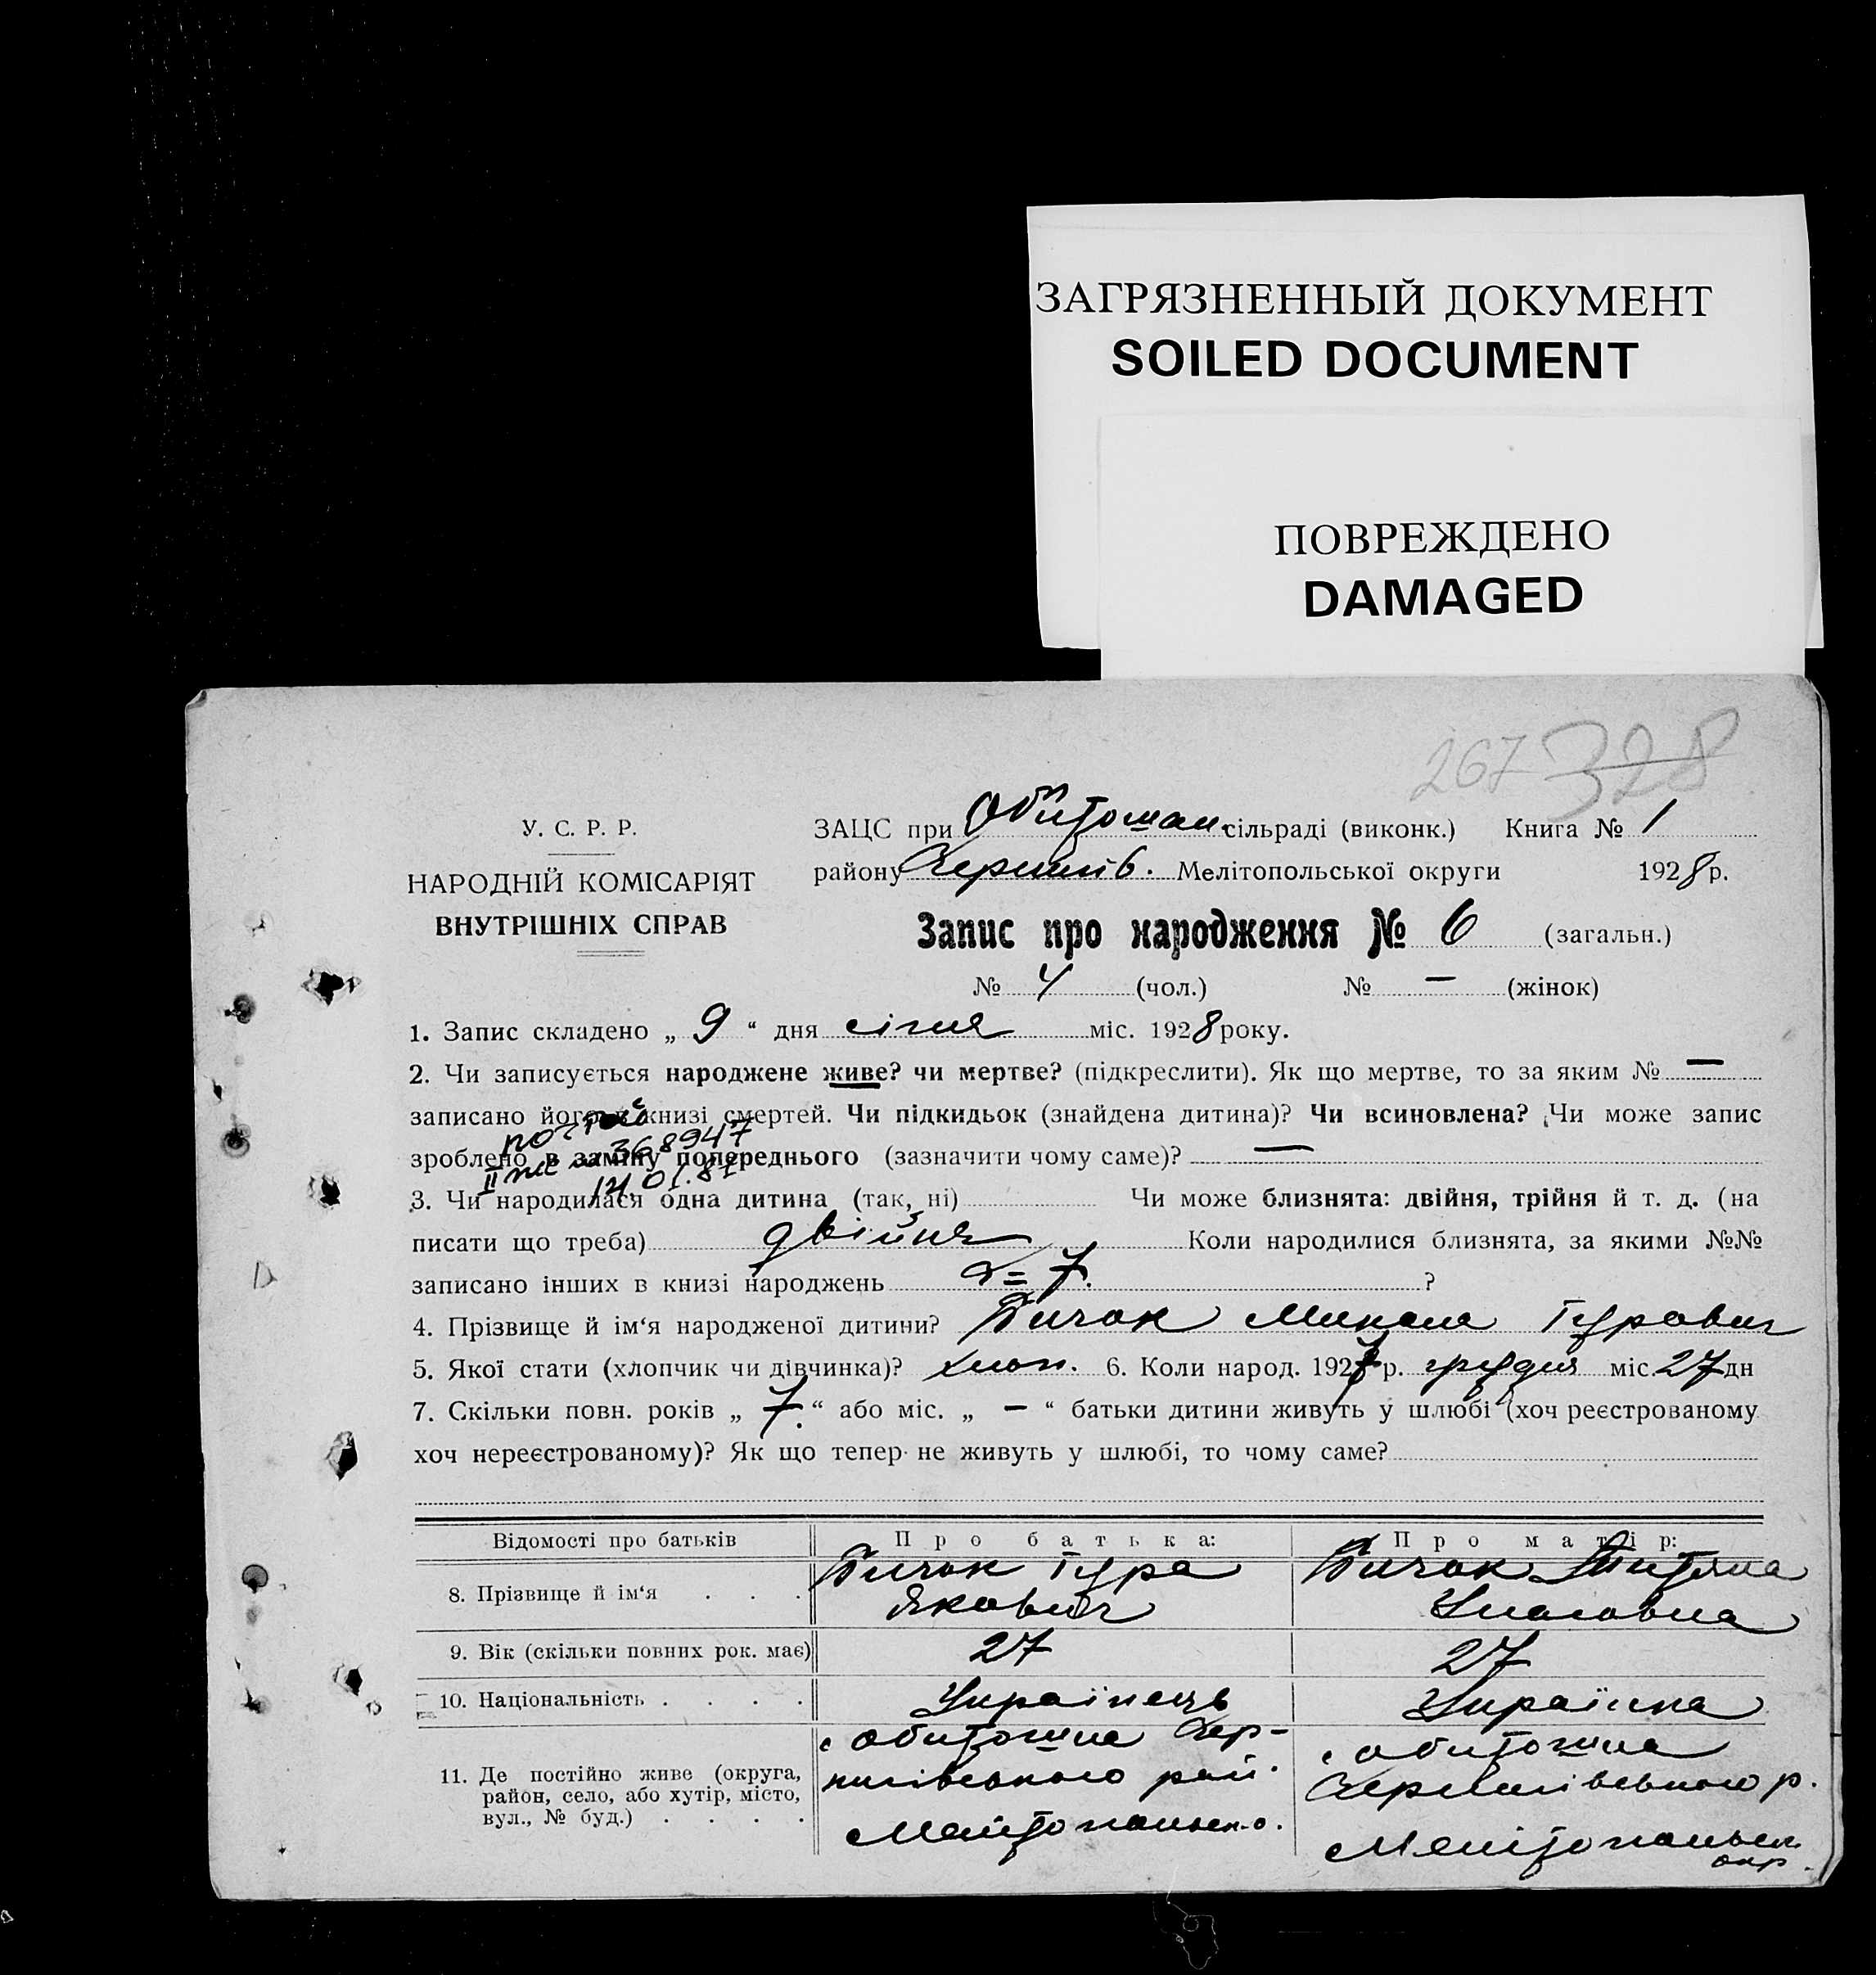 ЗАГРЯЗНЕННЫЙ ДОКУМЕНТ
SOILED DOCUMENT
ПОВРЕЖДЕНО
DAMAGED
267 328
У. С. Р. Р.
НАРОДНІЙ КОМІСАРІЯТ
ВНУТРІШНІХ СПРАВ
ЗАЦС при Обиточан. сільраді (виконк.) Книга № 1
району Мелітопольської округи 1928 р.
Запис про народження № 6 (загальн.)
№ 4 (чол.) № — (жінок)
1. Запис складено „ 9 “ дня січня міс. 1928 року.
2. Чи записується народжене живе? чи мертве? (підкреслити). Як що мертве, то за яким № —
записано його в книзі смертей. Чи підкидьок (знайдена дитина)? Чи всиновлена? Чи може запис
зроблено в заміну попереднього (зазначити чому саме)? —
368947
14.01.87
3. Чи народилася одна дитина (так, ні) Чи може близнята: двійня, трійня й т. д. (на
писати що треба) двійня Коли народилися близнята, за якими №№
записано інших в книзі народжень 7. ?
4. Прізвище й ім‘я народженої дитини? Бичок Микола Гурович
5. Якої стати (хлопчик чи дівчинка)? хлоп. 6. Коли народ. 1927 р. грудня міс. 27 дн
7. Скільки повн. років „ 7. “ або міс. „ — “ батьки дитини живуть у шлюбі (хоч реєстрованому
хоч нереєстрованому)? Як що тепер не живуть у шлюбі, то чому саме?
Відомості про батьків Про батька: Про матір:
8. Прізвище й ім‘я Бичок Гура Якович Бичок
9. Вік (скільки повних рок. має) 27 27
10. Національність Українець Українка
11. Де постійно живе (округа,
район, село, або хутір, місто,
вул., № буд.)
с Обиточна Чер-
нигівського рай.
Мелітопольск. о.
с Обиточна
Чернигівського р.
Мелітопольск
окр.